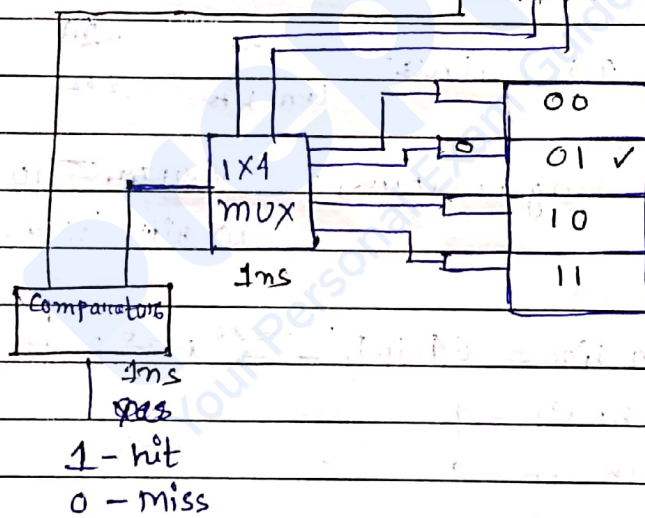 00
1X4
0
01 ✓
MUX
10
1ns
11
Comparators
1ns
1 - hit
0 - Miss
Your Personal Exam Guide